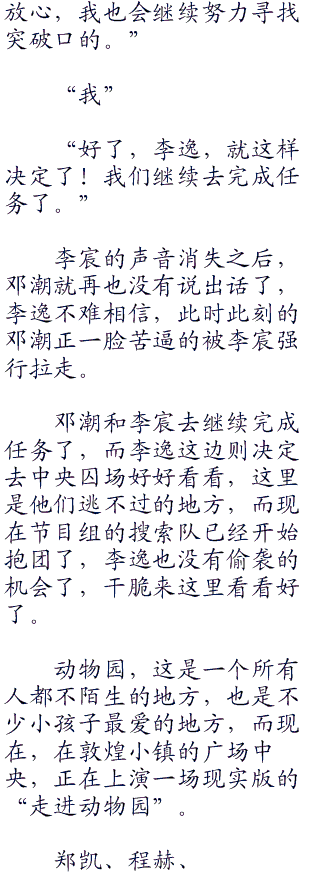 放心，我也会继续努力寻找
突破口的。”
“我”
“好了，李逸，就这样
决定了！我们继续去完成任
务了。”
李宸的声音消失之后，
邓潮就再也没有说出话了，
李逸不难相信，此时此刻的
邓潮正一脸苦逼的被李宸强
行拉走。
邓潮和李宸去继续完成
任务了，而李逸这边则决定
去中央囚场好好看看，这里
是他们逃不过的地方，而现
在节目组的搜索队已经开始
抱团了，李逸也没有偷袭的
机会了，干脆来这里看看好
了。
动物园，这是一个所有
人都不陌生的地方，也是不
少小孩子最爱的地方，而现
在，在敦煌小镇的广场中
央，正在上演一场现实版的
“走进动物园”。
郑凯、程赫、